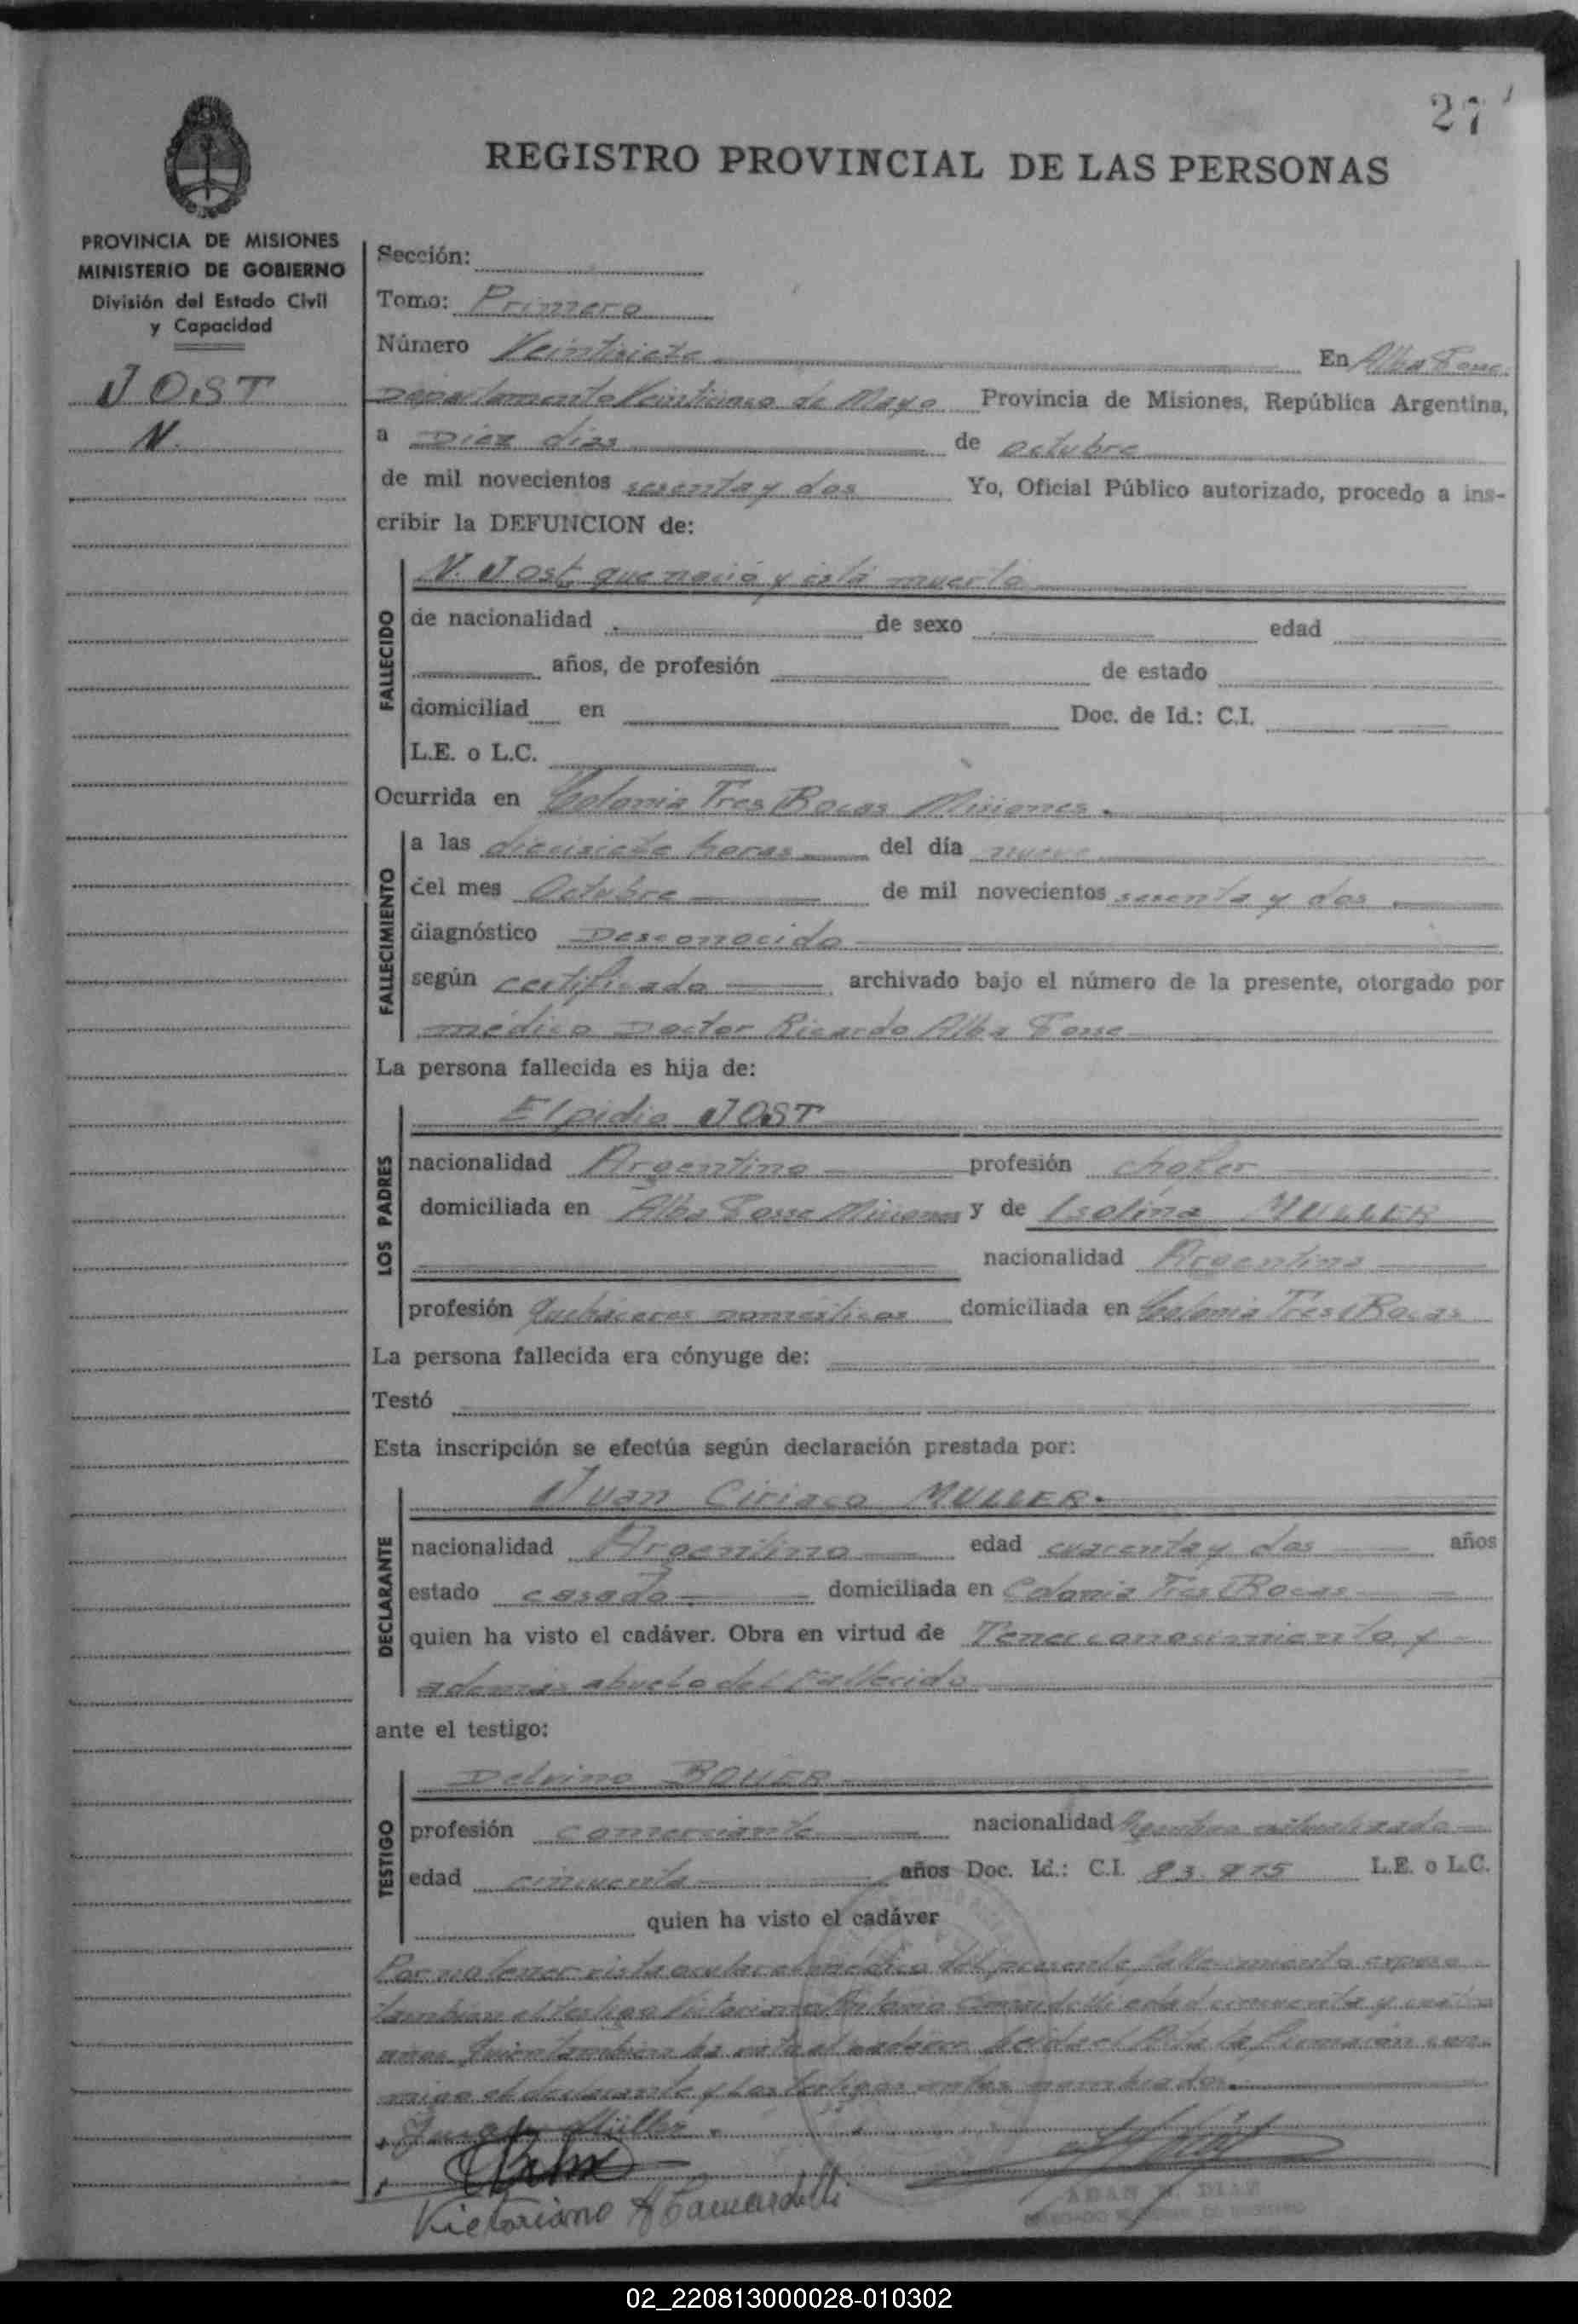 27
REGISTRO PROVINCIAL DE LAS PERSONAS
PROVINCIA DE MISIONES
MINISTERIO DE GOBIERNO
División del Estado Civil
y Capacidad
JOST
N.
Sección:
Tomo: Primero
Número Veintisiete En Alba Posse
Departamento Veinticinco de Mayo Provincia de Misiones, República Argentina,
a Diez dias de octubre
de mil novecientos sesenta y dos Yo, Oficial Público autorizado, procedo a ins-
cribir la DEFUNCION de:
FALLECIDO
N. Jost, que nació y está muerto
de nacionalidad de sexo edad
años, de profesión de estado
domiciliad en Doc. de Id.: C.I.
L.E. o L.C.
Ocurrida en Colonia Tres Bocas Misiones.
FALLECIMIENTO
a las diecisiete horas del día nueve
del mes Octubre de mil novecientos sesenta y dos
diagnóstico Desconocido
según certificado archivado bajo el número de la presente, otorgado por
médico Doctor Ricardo Alba Posse
La persona fallecida es hija de:
LOS PADRES
Elpidio JOST
nacionalidad Argentino profesión chofer
domiciliada en Alba Posse Misiones y de Isolina MULLER
nacionalidad Argentina
profesión Quehaceres domésticos domiciliada en Colonia Tres Bocas
La persona fallecida era cónyuge de:
Testó
Esta inscripción se efectúa según declaración prestada por:
DECLARANTE
Juan Ciriaco MULLER.
nacionalidad Argentino edad cuarenta y dos años
estado casado domiciliada en Colonia Tres Bocas
quien ha visto el cadáver. Obra en virtud de Tener conocimiento y
además abuelo del Fallecido
ante el testigo:
TESTIGO
Delvino BAUER
profesión comerciante nacionalidad Argentino naturalizado
edad cincuenta años Doc. Id.: C.I. 83.875 L.E. o L.C.
quien ha visto el cadáver
Por no tener vista ocular el médico del presente fallecimiento expuso
tambien el testigo Victoriano Antonio Camardelli edad cincuenta y cuatro
años quien tambien ha visto el cadáver leída el Acta la firmaron con-
migo el declarante y los testigos antes nombrados.
Juan Müller
Victoriano A Camardelli
ADAN DIAZ
02_220813000028-010302